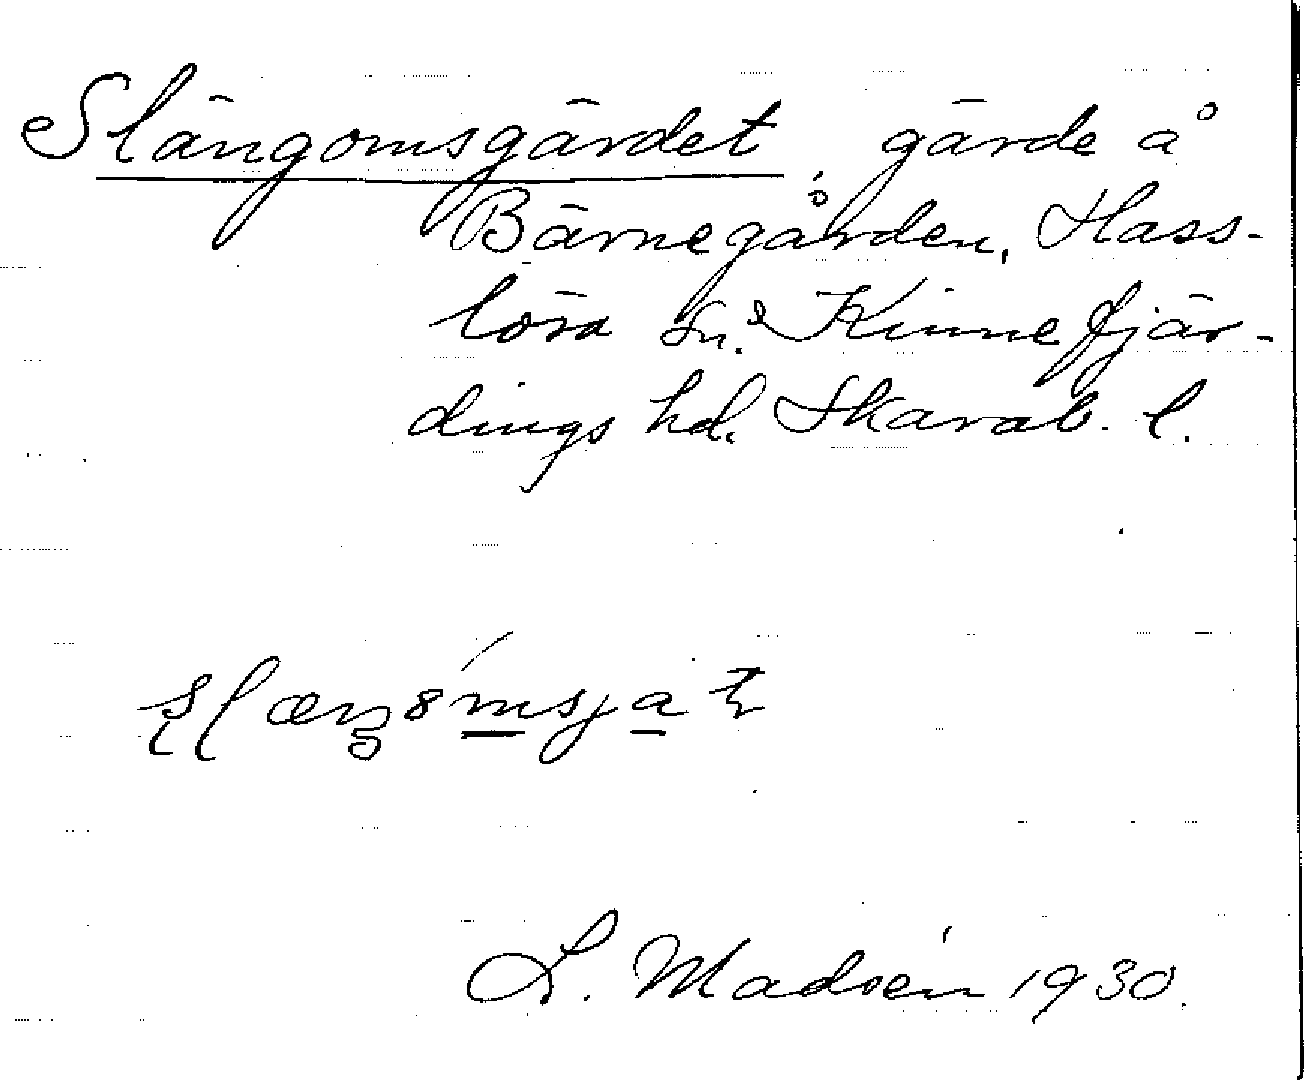 Slängomsgärdet, gärde å
Bärnegården, Hass-
lösa sn. Kinnefjär-
dings hd. Skarab. l.
L. Madsén 1930.